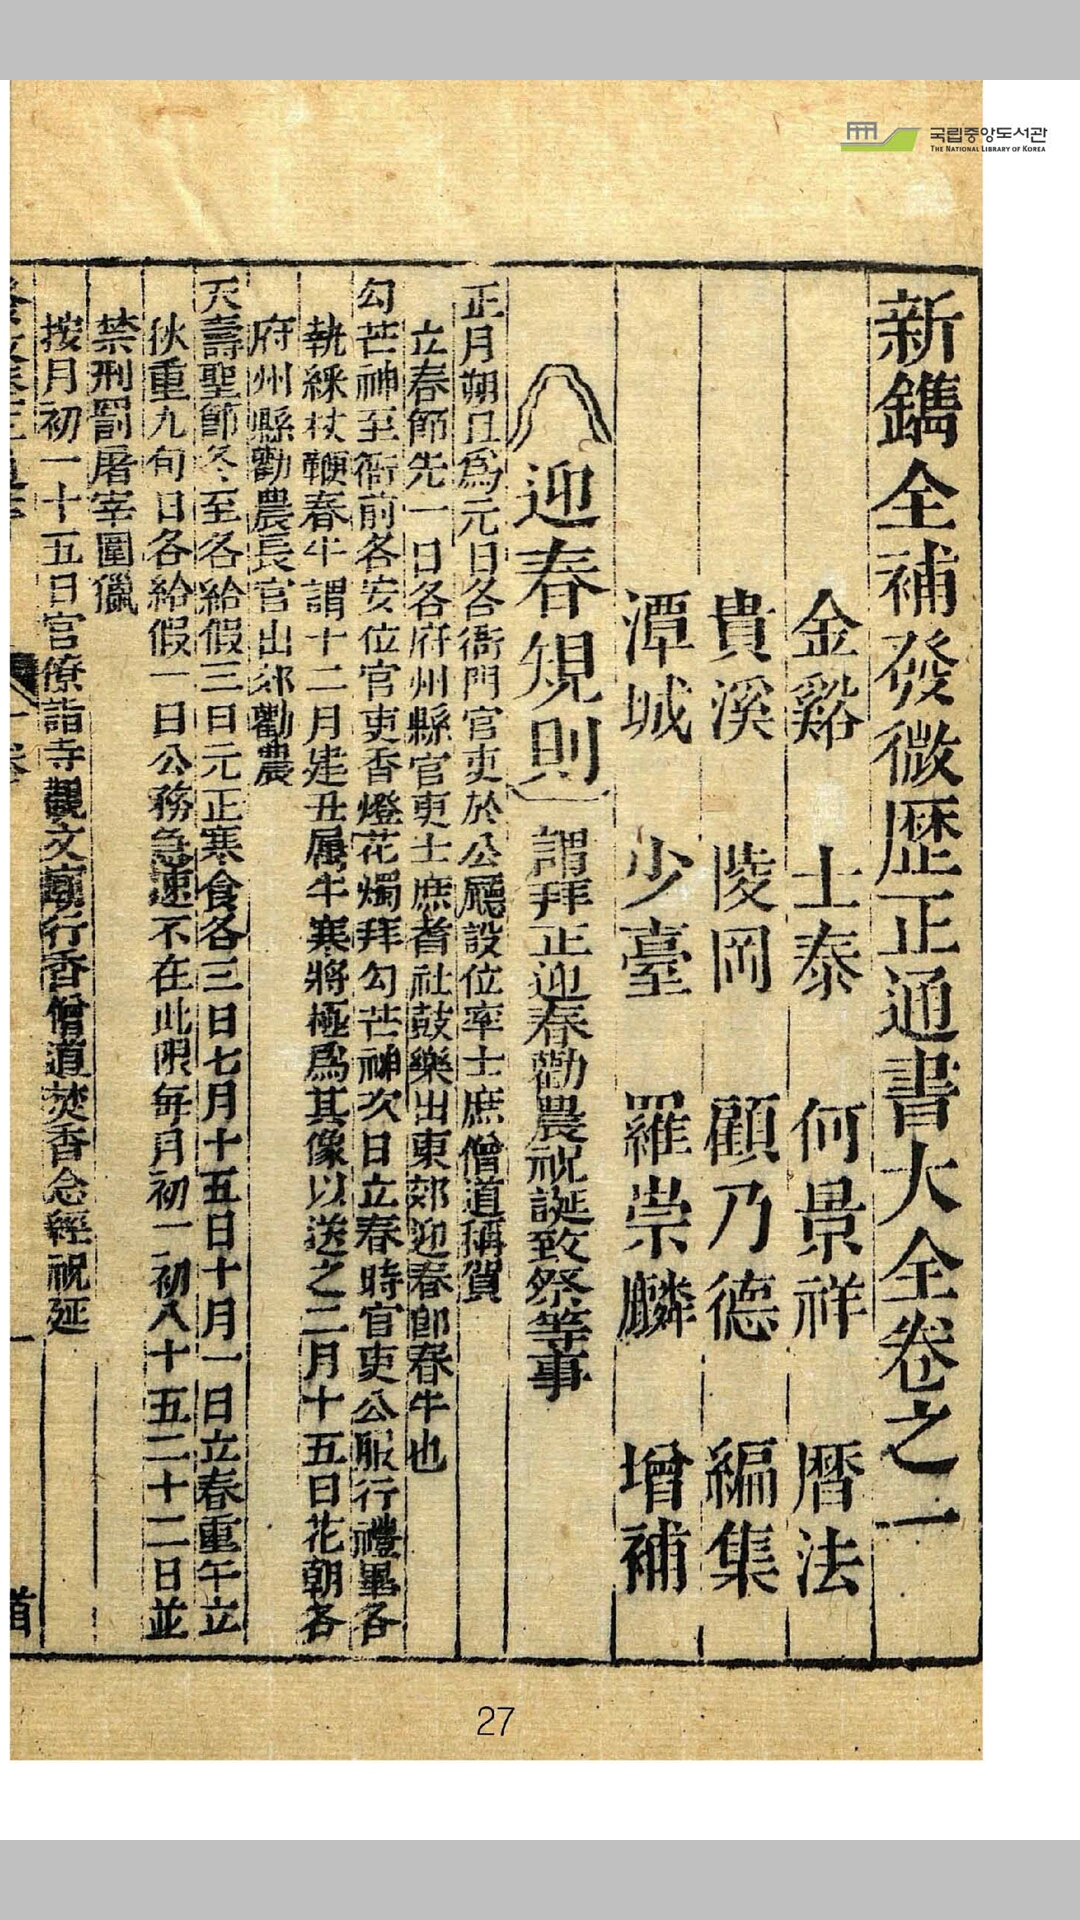 국립중앙도서관
THE NATIONAL LIBRARY OF KOREA
新鐫全補發微歷正通書大全卷之一
金谿 士泰 何景祥 曆法
貴溪 陵岡 顧乃德 編集
潭城 少臺 羅崇麟 增補
迎春規則 謂拜正迎春勸農祝誕致祭等事
正月朔旦爲元日各衙門官吏於公廳設位率士庶僧道稱賀
立春節先一日各府州縣官吏士庶耆社鼓樂出東郊迎春卽春牛也
勾芒神至衙前各安位官吏香燈花燭拜勾芒神次日立春時官吏公服行禮畢各
執綵杖鞭春牛謂十二月建丑屬牛寒將極爲其像以送之二月十五日花朝各
府州縣勸農長官出郊勸農
天壽聖節冬至各給假三日元正寒食各三日七月十五日十月一日立春重午立
秋重九旬日各給假一日公務急速不在此限每月初一初八十五二十二日並
禁刑罰屠宰圍獵
按月初一十五日官僚詣寺觀文廟行香僧道焚香念經祝延
一
首
27